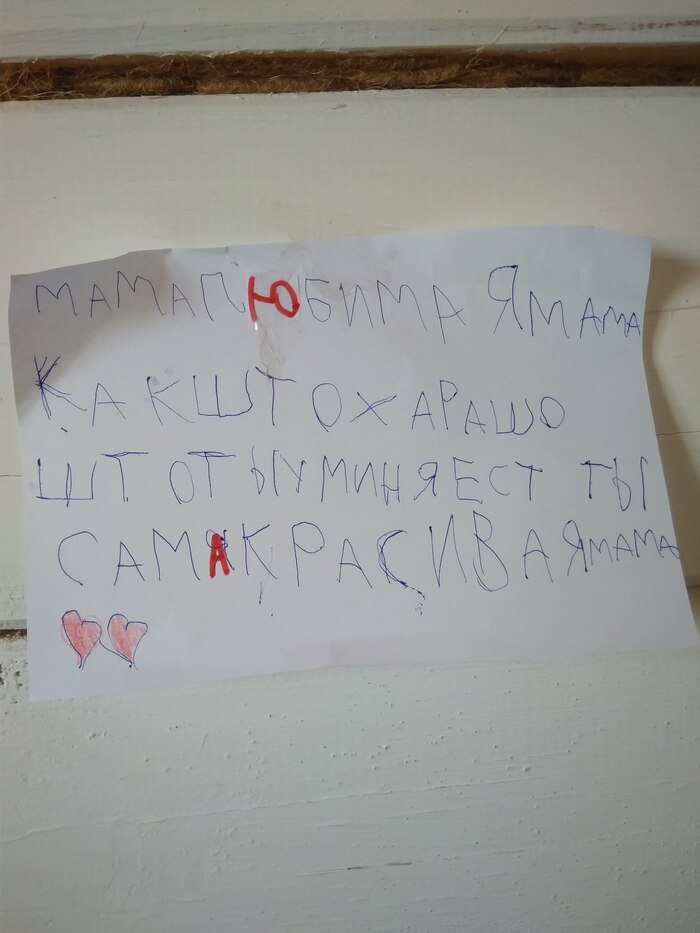 МАМАЛЮБИМА ЯМАМА
КАКШТОХАРАШО
ШТОТЫУМИНЯЕСТ ТЫ
САМАКРАСИВАЯМАМА